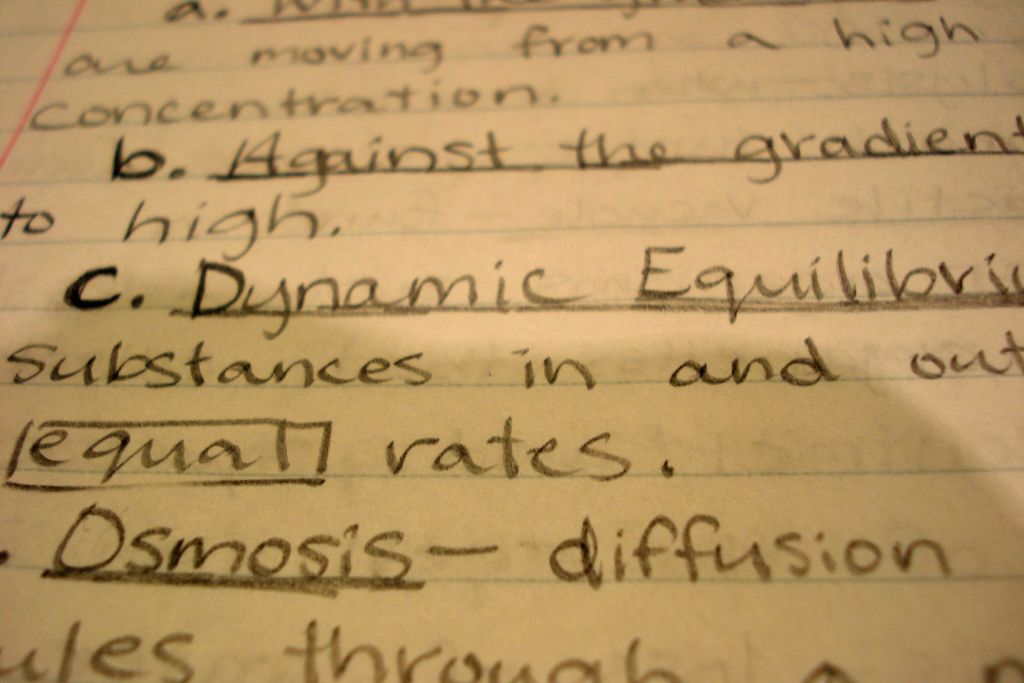 a. With the
are moving from a high
concentration.
b. Against the gradient
to high.
c. Dynamic Equilibri
Substances in and out
equal rates.
. Osmosis — diffusion
ules through a